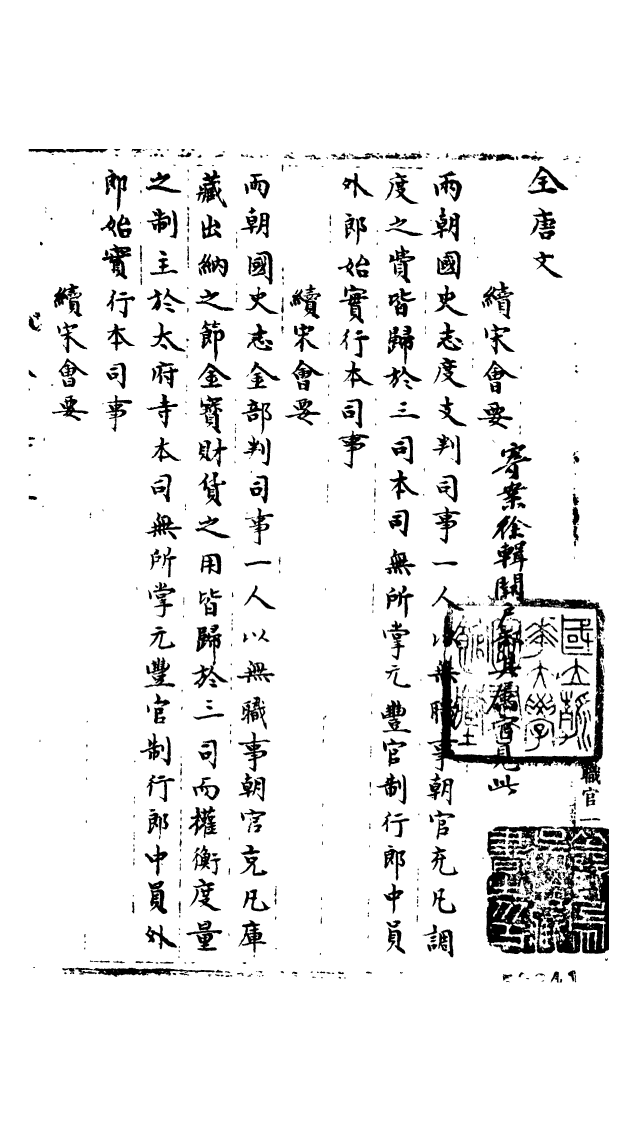 全唐文
續宋會要
寄案徐輯關
見此
兩朝國史志度支判司事一人以無職事朝官充凡調
度之費皆歸於三司本司無所掌元豐官制行郎中員
外郎始實行本司事
續宋會要
兩朝國史志金部判司事一人以無職事朝官充凡庫
藏出納之節金寶財貨之用皆歸於三司而權衡度量
之制主於太府寺本司無所掌元豐官制行郎中員外
郎始實行本司事
續宋會要
職官一